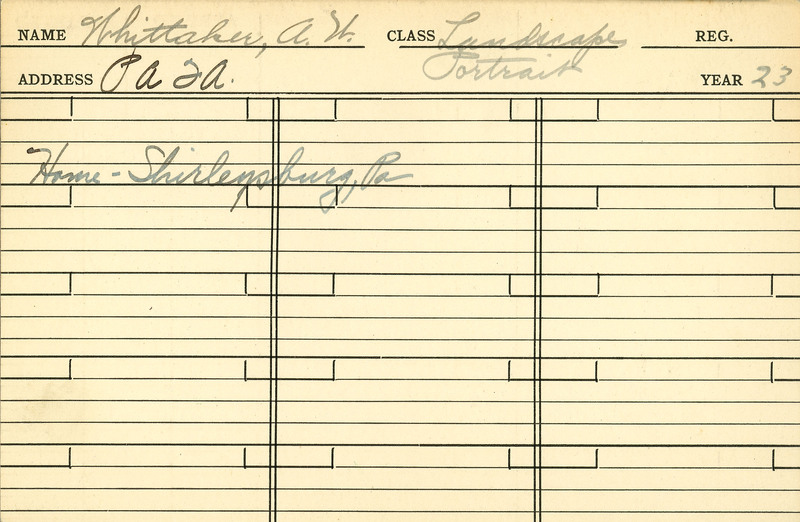 NAME Whittaker, A. W. CLASS Landscape REG.
Portrait
ADDRESS P A F A. YEAR 23
Home - Shirleysburg, Pa